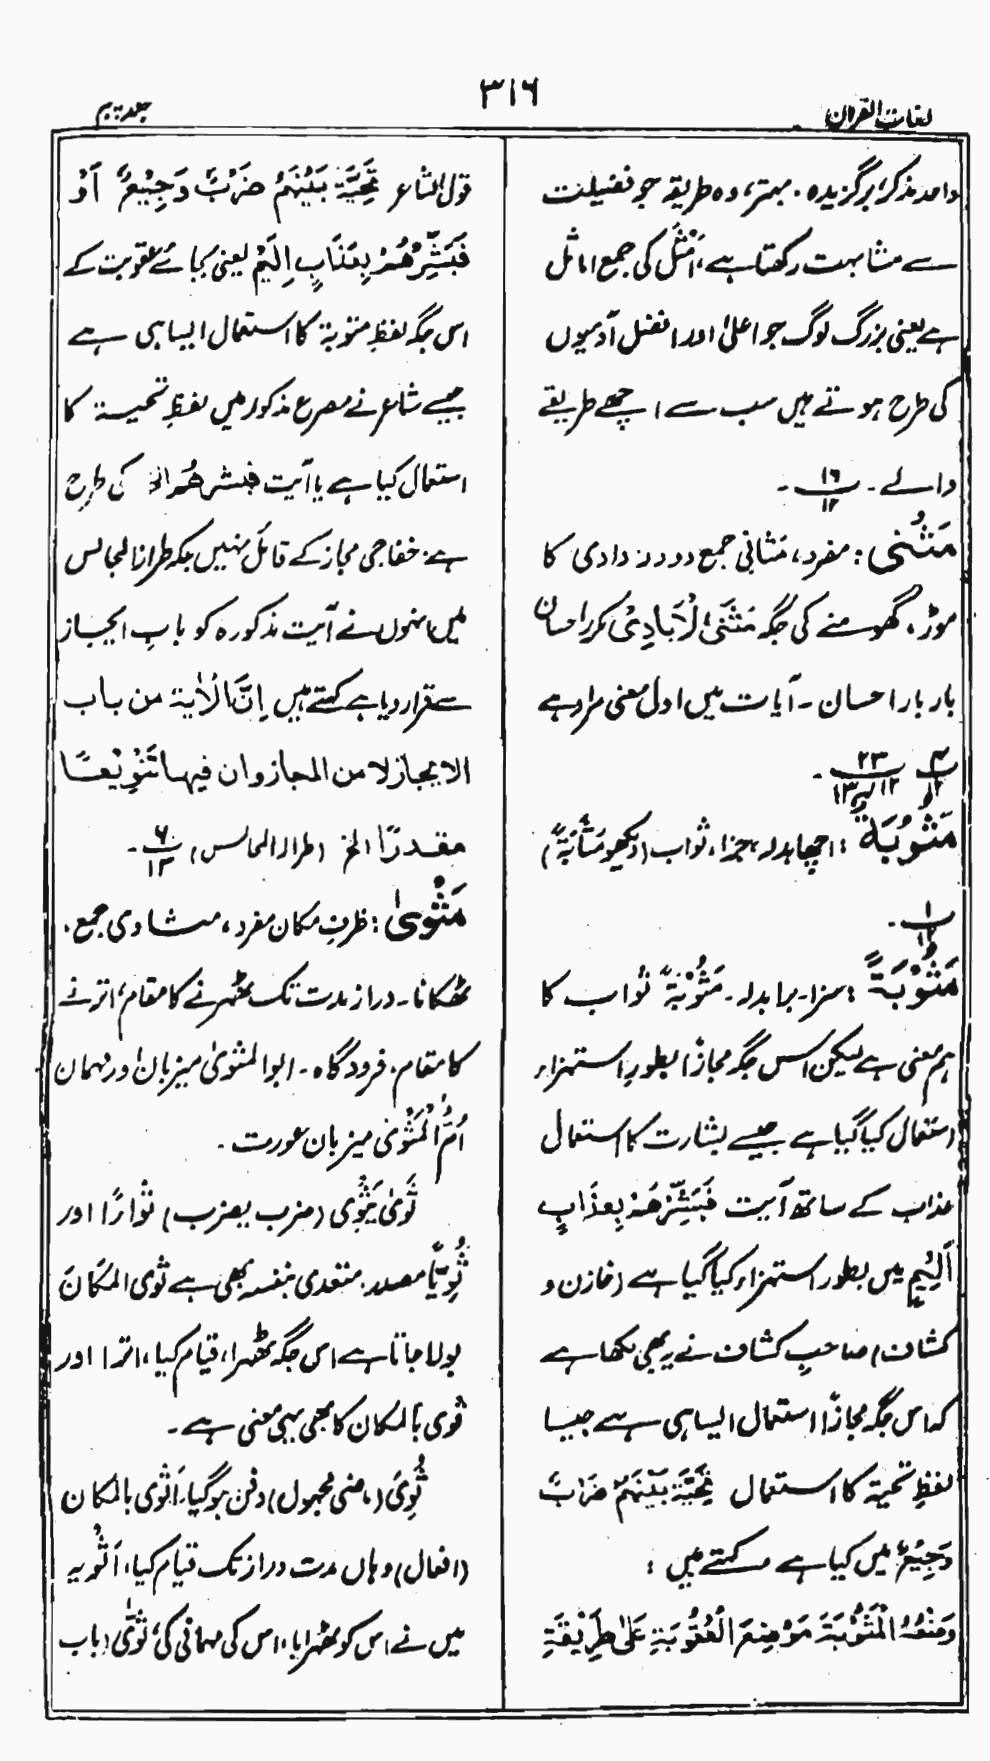 لغات القرآن
٣١٦
جلد پنجم
واحد مذکر، برگزیدہ۔ بہتر، وہ طریقہ جو فضیلت
سے مشابہت رکھتا ہے، اَمْثَل کی جمع اماثل
ہے یعنی بزرگ لوگ جو اعلیٰ اور افضل آدمیوں
کی طرح ہوتے ہیں سب سے اچھے طریقے
والے۔ ۱۶/۱۲۔
مَثْنٰی: مفرد، مَثانی جمع دو دو۔ وادی کا
موڑ، گھومنے کی جگہ مَثْنَی الْاَیَادِیْ مکرر احسان
بار بار احسان۔ آیات میں اول معنی مراد ہے
۴/۱۲ و ۲۲/۱۲ ۱۳
مَثُوْبَةٌ: اچھا بدلہ، جزا، ثواب (دیکھو مَثَابَةً)
۱/۱۲۔
مَثُوْبَةً: سزا۔ برا بدلہ۔ مَثُوْبَةً ثواب کا
ہم معنی ہے لیکن اس جگہ مجازًا بطور استہزاء
استعمال کیا گیا ہے جیسے بشارت کا استعمال
عذاب کے ساتھ آیت فَبَشِّرْهُمْ بِعَذَابٍ
اَلِیْمٍ میں بطور استہزاء کیا گیا ہے (خازن و
کشاف) صاحبِ کشاف نے یہ بھی لکھا ہے
کہ اس جگہ مجازًا استعمال ایسا ہی ہے جیسا
لفظِ تحیۃ کا استعمال تَحِیَّةُ بَیْنَهُمْ ضَرْبٌ
وَجِیْعٌ میں کیا ہے کہتے ہیں:
وَضْعُ الْمَثُوْبَةِ مَوْضِعَ الْعُقُوْبَةِ عَلیٰ طَرِیْقَةِ
قول الشاعر تَحِیَّةُ بَیْنَهُمْ ضَرْبٌ وَجِیْعٌ اَوْ
فَبَشِّرْهُمْ بِعَذَابٍ اَلِیْمٍ یعنی بجائے عقوبت کے
اس جگہ لفظِ مثوبۃ کا استعمال ایسا ہی ہے
جیسے شاعر نے مصرع مذکور میں لفظِ تحیۃ کا
استعمال کیا ہے یا آیت فبشرهُم الخ کی طرح
ہے۔ خفاجی مجاز کے قائل نہیں بلکہ طراز المجالس
میں انہوں نے آیت مذکورہ کو بابِ ایجاز
سے قرار دیا ہے کہتے ہیں اِنَّ الْاٰیة من باب
الایجاز لا من المجاز وان فیها تَنْوِیْعًا
مقدرًا الخ (طراز المجالس) ۶/۱۳۔
مَثْوىٰ: ظرفِ مکان مفرد، مثاوی جمع،
ٹھکانا۔ دراز مدت تک ٹھہرنے کا مقام، اترنے
کا مقام، فرودگاہ۔ ابوا لمثویٰ میزبان اور مہمان
اُمُّ الْمَثْوٰی میزبان عورت۔
ثَوٰی یَثْوِی (ضرب یضرب) ثَوَاءً اور
ثُوِیًّا مصدر۔ متعدی بنفسہٖ بھی ہے ثوی المکانَ
بولا جاتا ہے اس جگہ ٹھہرا، قیام کیا، اترا اور
ثوی بالمکان کا بھی یہی معنی ہے۔
ثُوِیَ (ماضی مجہول) دفن ہو گیا، اَثْوی بالمکان
(افعال) وہاں مدت دراز تک قیام کیا، اَثْوَیہ
میں نے اس کو ٹھہرایا، اس کی مہمانی کی، ثَوّٰی (باب